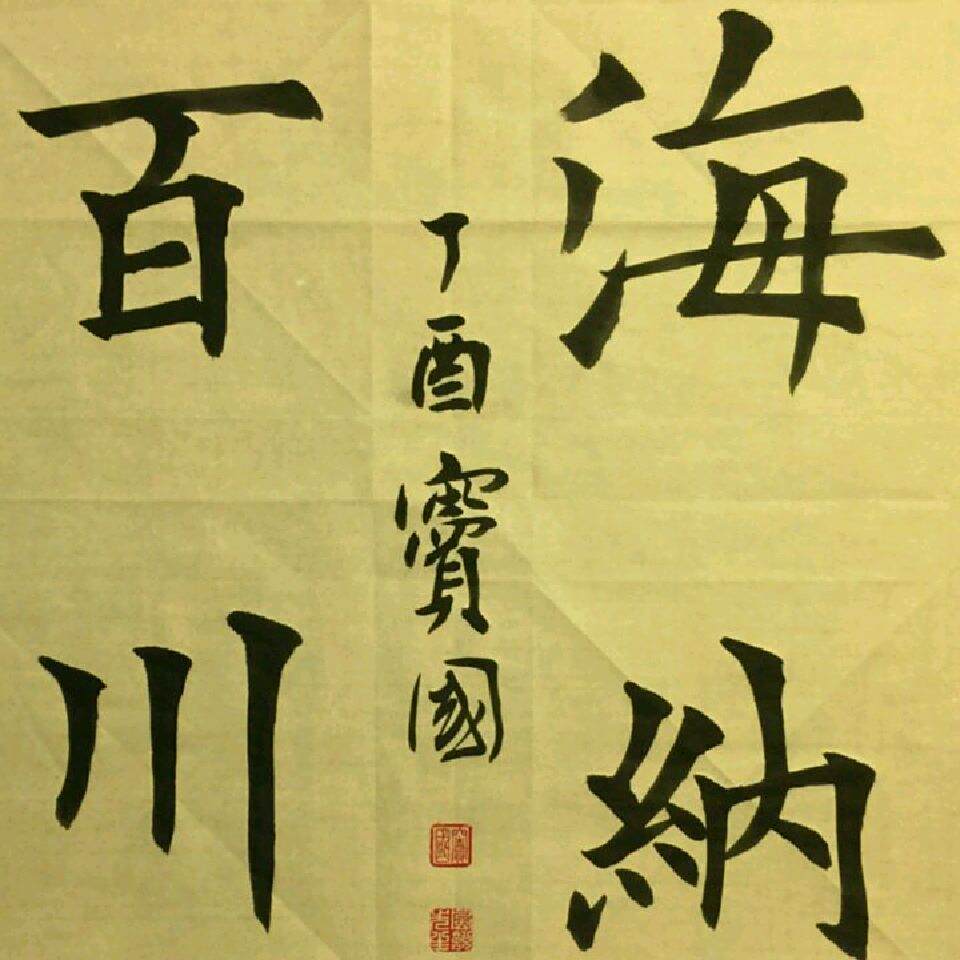 海納
百川
丁酉寶國